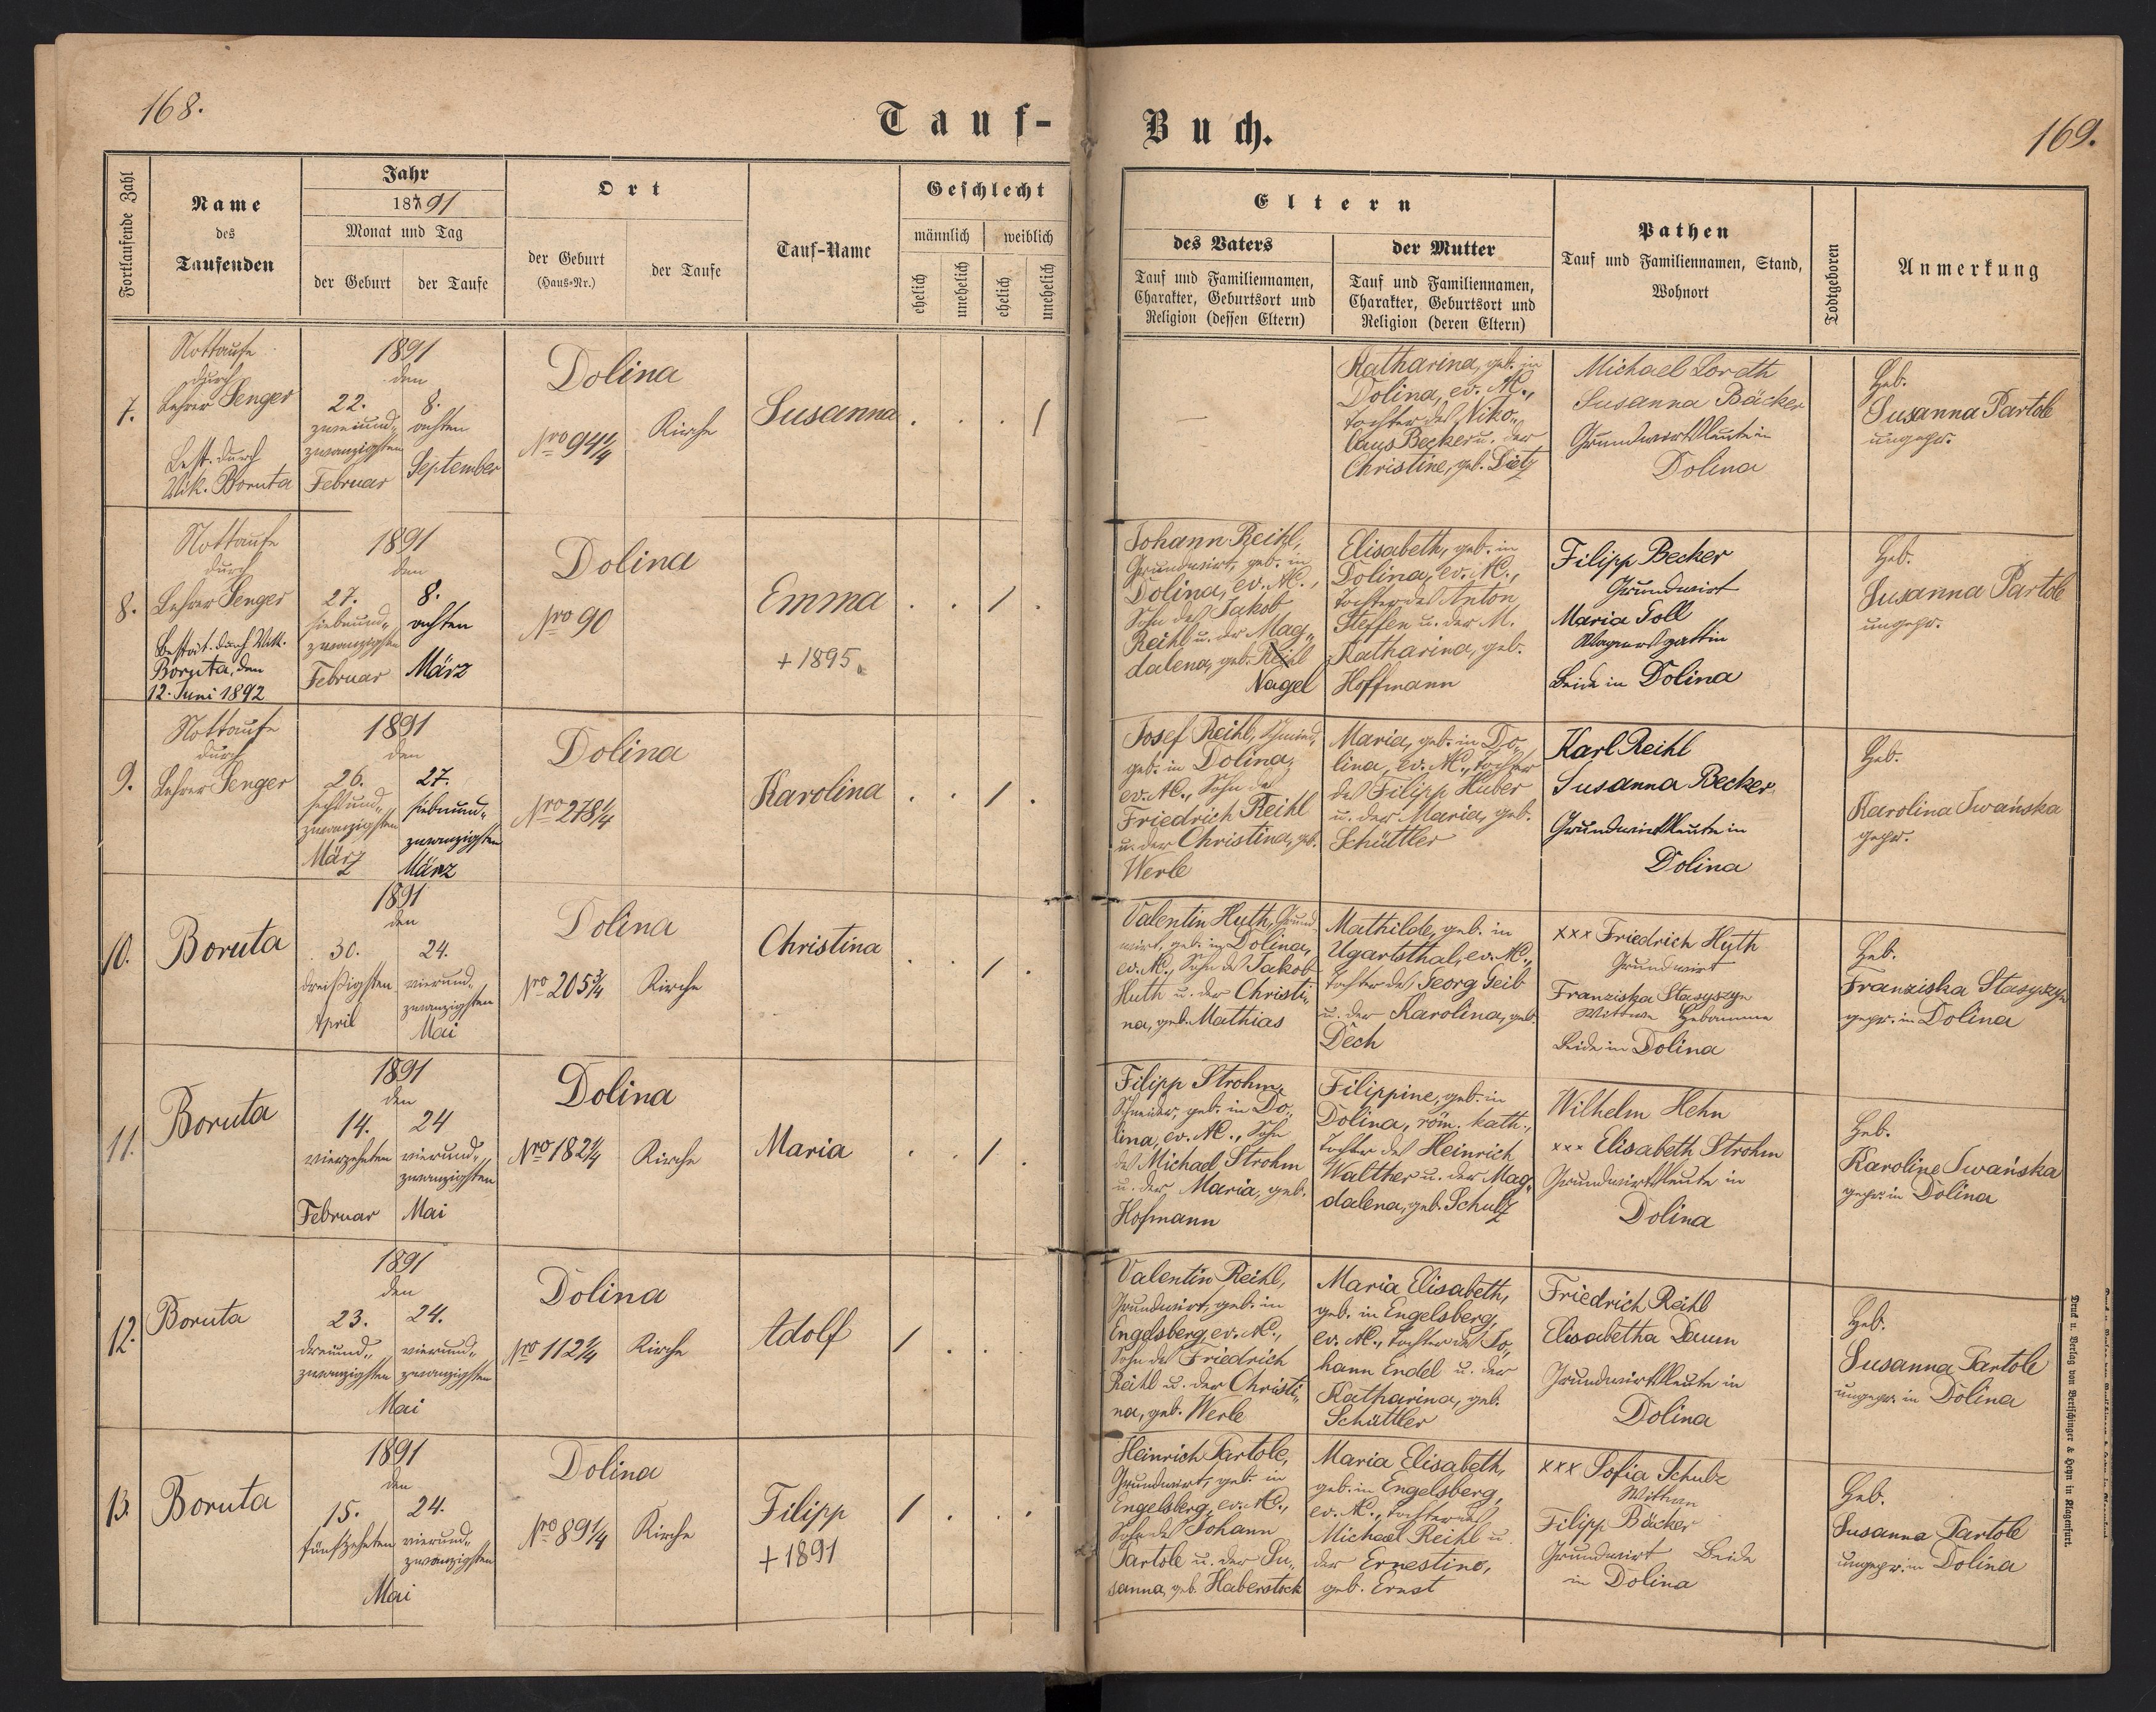 168.
Tauf-
Fortlaufende Zahl
Name
des
Taufenden
Jahr
18791
Monat und Tag
der Geburt
der Taufe
Ort
der Geburt
(Haus-Nr.)
der Taufe
Tauf-Name
Geschlecht
männlich
weiblich
ehelich
unehelich
ehelich
unehelich
7.
Nottaufe
durch
Lehrer Senger
Best. durch
Vik. Boruta
1891
den
22.
zweiund„
zwanzigsten
Februar
8.
achten
September
Dolina
Nro 94 1/4
Kirche
Susanna
. . . 1
8.
Nottaufe
durch
Lehrer Senger
Bestät. durch Vik.
Boruta, den
12. Juni 1892
1891
den
27.
siebenund„
zwanzigsten
Februar
8.
achten
März
Dolina
Nro 90
Emma
+ 1895.
. . 1 .
9.
Nottaufe
durch
Lehrer Senger
1891
den
26.
sechsund„
zwanzigsten
März
27.
siebenund„
zwanzigsten
März
Dolina
Nro 278 1/4
Karolina
. . 1 .
10.
Boruta
1891
den
30.
dreißigsten
April
24.
vierund„
zwanzigsten
Mai
Dolina
Nro 205 3/4
Kirche
Christina
. . 1 .
11.
Boruta
1891
den
14.
vierzehnten
Februar
24
vierund„
zwanzigsten
Mai
Dolina
Nro 182 1/4
Kirche
Maria
. . 1 .
12.
Boruta
1891
den
23.
dreiund„
zwanzigsten
24.
vierund„
zwanzigsten
Mai
Dolina
Nro 112 1/4
Kirche
Adolf
1 . . .
13.
Boruta
1891
den
15.
fünfzehnten
24.
vierund„
zwanzigsten
Mai
Dolina
Nro 89 1/4
Kirche
Filipp
+ 1891
1 . . .
Buch.
169.
Eltern
des Vaters
Tauf und Familiennamen,
Charakter, Geburtsort und
Religion (dessen Eltern)
der Mutter
Tauf und Familiennamen,
Charakter, Geburtsort und
Religion (deren Eltern)
Pathen
Tauf und Familiennamen, Stand,
Wohnort
Todtgeboren
Anmerkung
—
Katharina, geb. in
Dolina, ev. A.C.,
Tochter des Niko„
laus Becker u. der
Christine, geb. Dietz
Michael Lorath
Susanna Bäcker
Grundwirtsleute in
Dolina
Heb.
Susanna Partole
ungepr.
Johann Reihl,
Grundwirt, geb. in
Dolina, ev. A.C.,
Sohn des Jakob
Reihl u. der Mag„
dalena, geb. Reihl
Nagel
Elisabeth, geb. in
Dolina, ev. A.C.,
Tochter des Anton
Steffen u. der M.
Katharina, geb.
Hoffmann
Filipp Becker
Grundwirt
Maria Toll
Wagnersgattin
Beide in Dolina
Heb.
Susanna Partole
ungepr.
Josef Reihl, Schmied,
geb. in Dolina,
ev. A.C., Sohn des
Friedrich Reihl
u. der Christina, geb.
Werle
Maria, geb. in Do„
lina, ev. A.C., Tochter
des Filipp Huber
u. der Maria, geb.
Schüttler
Karl Reihl
Susanna Becker
Grundwirtsleute in
Dolina
Heb.
Karolina Iwańska
gepr.
Valentin Huth, Grund„
wirt, geb. in Dolina,
ev. A.C., Sohn des Jakob
Huth u. der Christi„
na, geb. Mathias
Mathilde, geb. in
Ugartsthal, ev. A.C.,
Tochter des Georg Geib
u. der Karolina, geb.
Dech
xxx Friedrich Huth
Grundwirt
Franziska Stasyszyn
Wittwe Hebamme
Beide in Dolina
Heb.
Franziska Stasyszyn
gepr. in Dolina
Filipp Strohm,
Schneider, geb. in Do„
lina, ev. A.C., Sohn
des Michael Strohm
u. der Maria, geb.
Hofmann
Filippine, geb. in
Dolina, röm. kath.,
Tochter des Heinrich
Walther u. der Mag„
dalena, geb. Schulz
Wilhelm Hehn
xxx Elisabeth Strohm
Grundwirtsleute in
Dolina
Heb.
Karoline Iwańska
gepr. in Dolina
Valentin Reihl,
Grundwirt, geb. in
Engelsberg, ev. A.C.,
Sohn des Friedrich
Reihl u. der Christi„
na, geb. Werle
Maria Elisabeth,
geb. in Engelsberg,
ev. A.C., Tochter des Jo„
hann Endel u. der
Katharina, geb.
Schüttler
Friedrich Reihl
Elisabetha Daum
Grundwirtsleute in
Dolina
Heb.
Susanna Partole
ungepr. in Dolina
Heinrich Partole,
Grundwirt, geb. in
Engelsberg, ev. A.C.,
Sohn des Johann
Partole u. der Su„
sanna, geb. Haberstock
Maria Elisabeth,
geb. in Engelsberg,
ev. A.C., Tochter des
Michael Reihl u.
der Ernestine,
geb. Ernst
xxx Sofia Schulz
Wittwe
Filipp Bäcker
Grundwirt Beide
in Dolina
Heb.
Susanna Partole
ungepr. in Dolina
Druck u. Verlag von Bertschinger & Heyn in Klagenfurt.